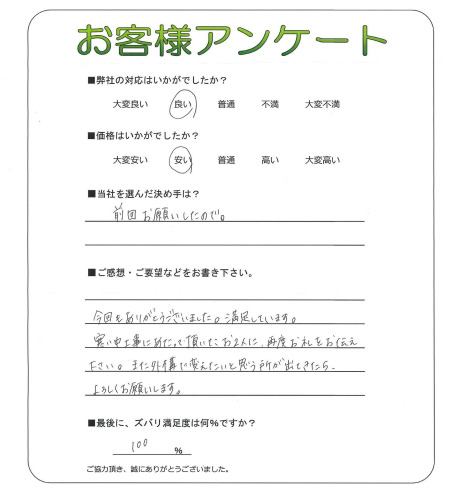 お客様アンケート
■弊社の対応はいかがでしたか？
大変良い 良い 普通 不満 大変不満
■価格はいかがでしたか？
大変安い 安い 普通 高い 大変高い
■当社を選んだ決め手は？
前回お願いしたので。
■ご感想・ご要望などをお書き下さい。
今回もありがとうございました。満足しています。
寒い中工事にあたって頂いたお2人に、再度お礼をお伝え
下さい。また外構で変えたいと思う所が出てきたら、
よろしくお願いします。
■最後に、ズバリ満足度は何％ですか？
100 ％
ご協力頂き、誠にありがとうございました。